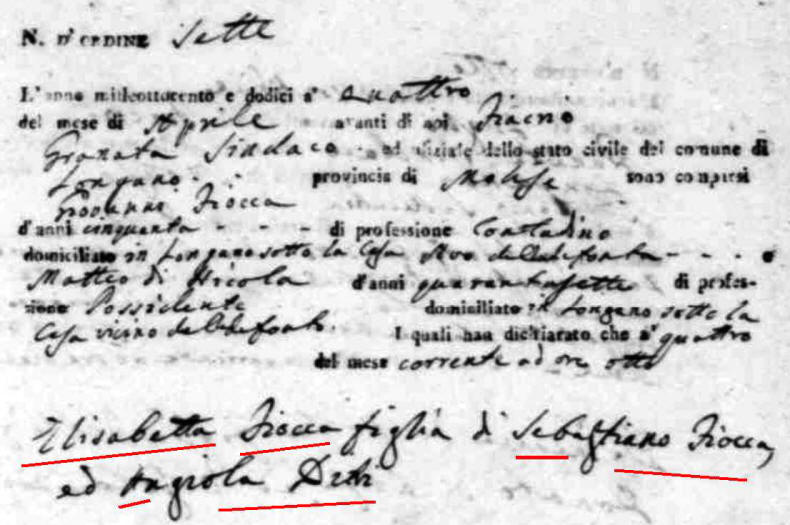 N. D'ORDINE Sette
L'anno milleottocento e dodici a' quattro
del mese di Aprile avanti di noi
Granata Sindaco ed ufiziale dello stato civile del comune di
Longano provincia di Molise sono comparsi
Giovanni Fiocca
d'anni cinquanta di professione Contadino
domiciliato in Longano sotto la Casa
Matteo di Nicola d'anni quarantasette di profes-
sione Possidente domiciliato in Longano sotto la
Casa vicino I quali han dichiarato che a' quattro
del mese corrente ad ore otto
Elisabetta Fiocca figlia di Sebastiano Fiocca,
ed Angiola